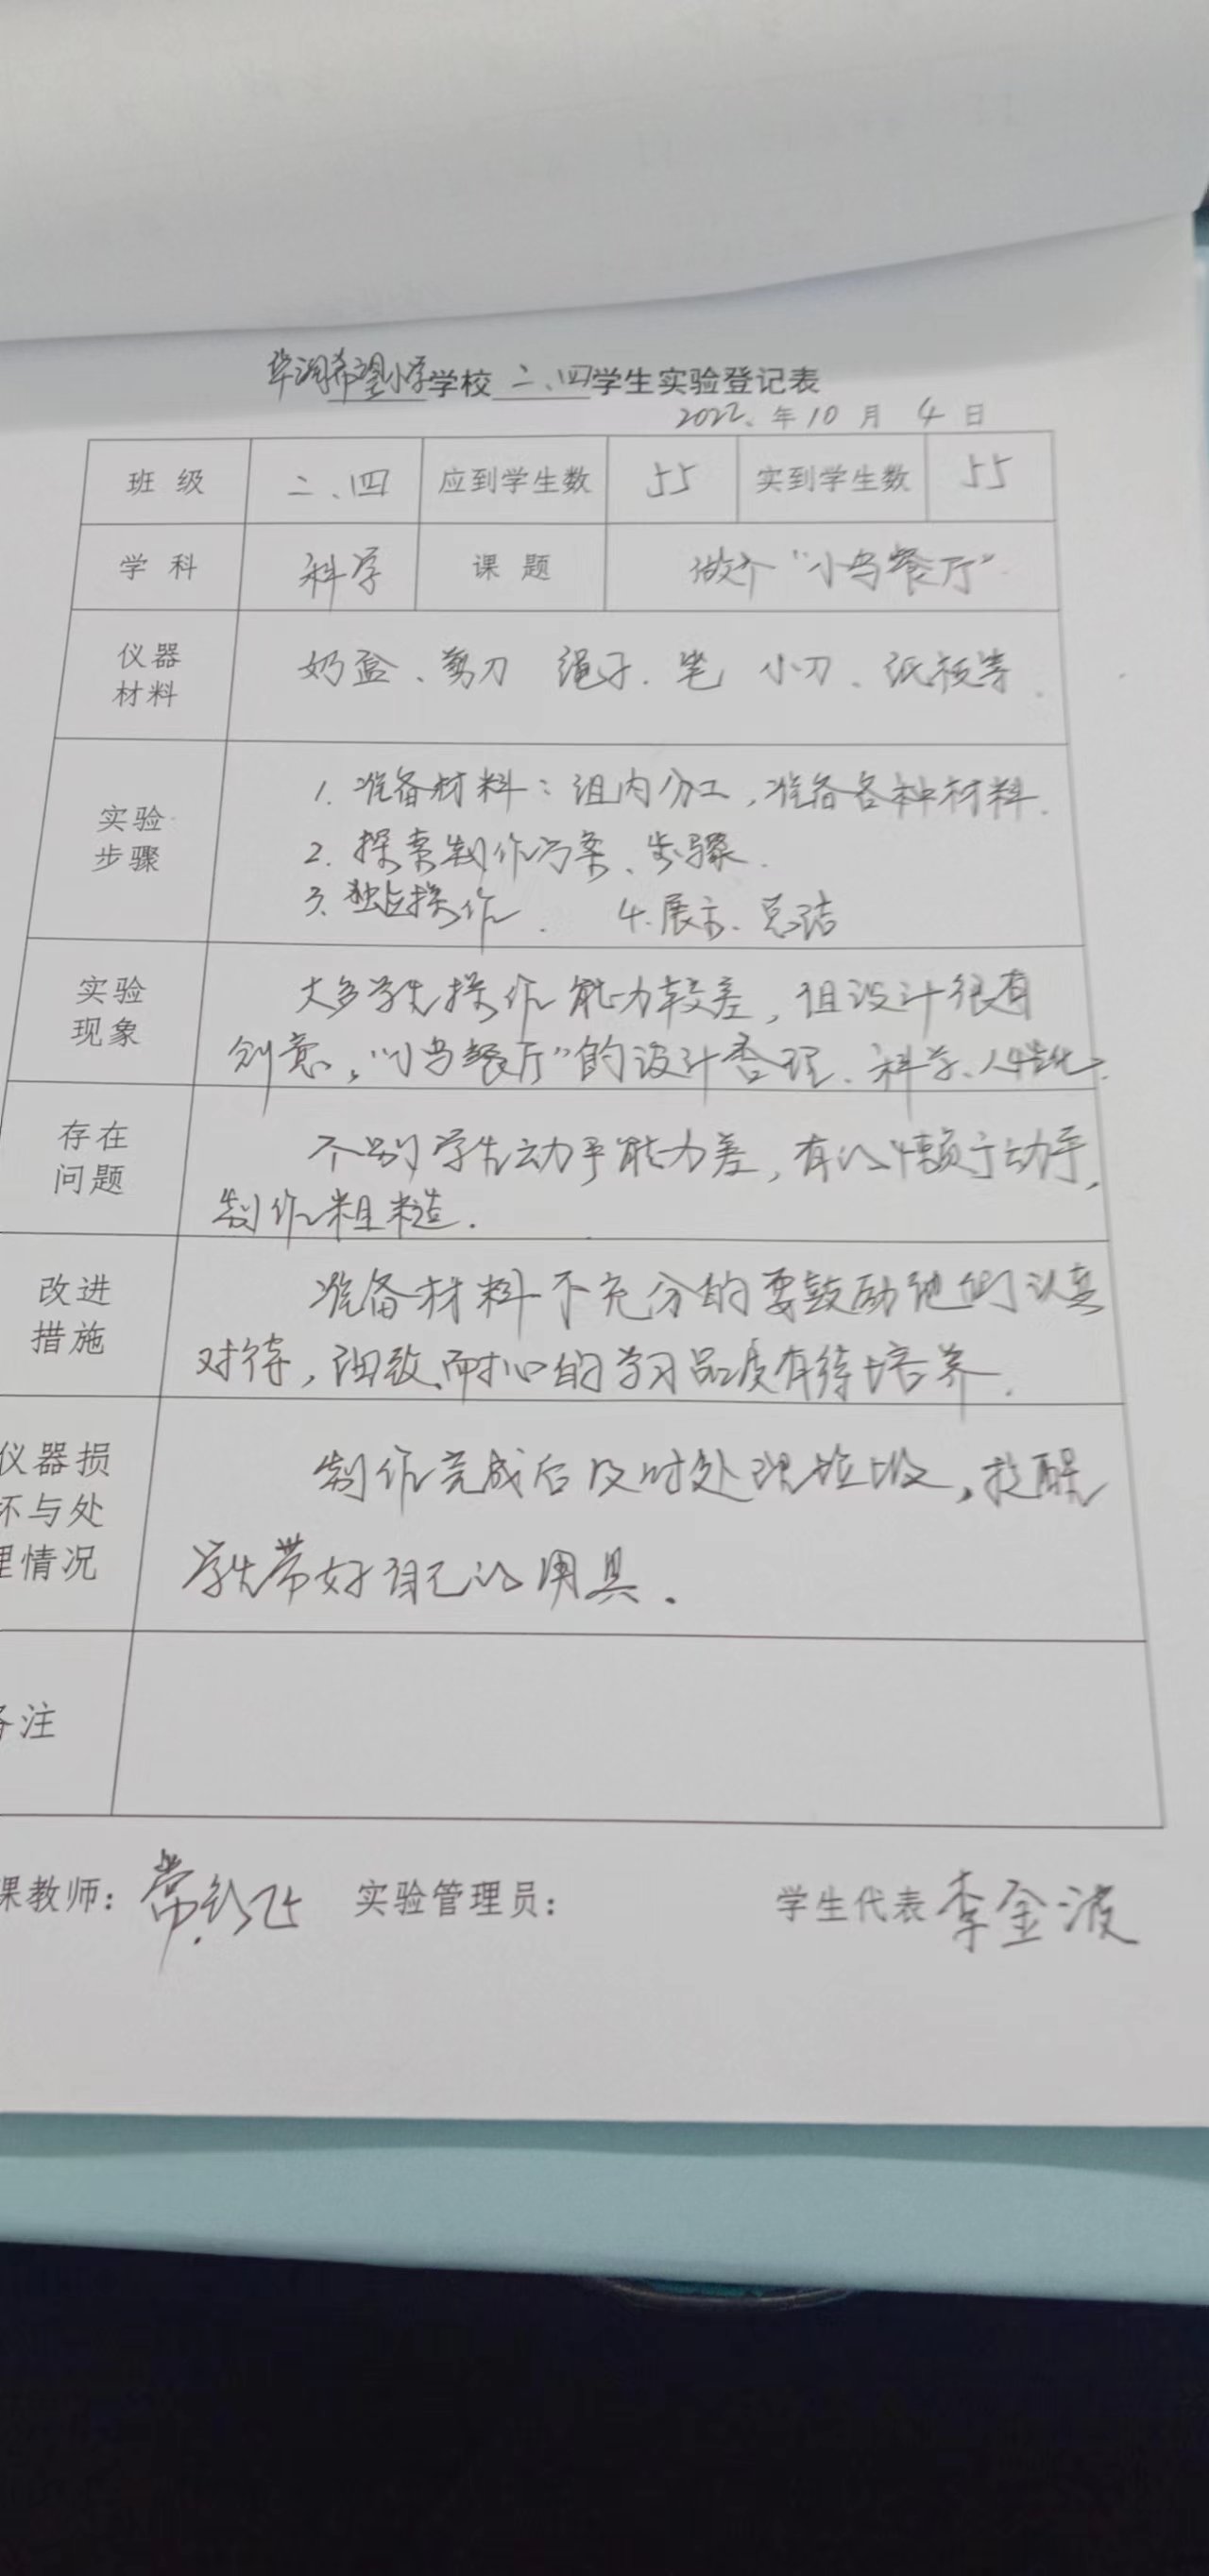 华润希望小学学校 二、四学生实验登记表
2022年10月4日
班级 二、四 应到学生数 55 实到学生数 55
学科 科学 课题 做个“小鸟餐厅”
仪器
材料
奶盒、剪刀 绳子、笔 小刀、纸板等
实验
步骤
1. 准备材料：组内分工，准备各种材料.
2. 探索制作方案、步骤.
3. 独立操作. 4.展示、总结
实验
现象
大多学生操作能力较差，但设计很有
创意，“小鸟餐厅”的设计合理、科学、人性化.
存在
问题
个别学生动手能力差，有的懒于动手，
制作粗糙.
改进
措施
准备材料不充分的要鼓励他们认真
对待，细致、耐心的学习品质有待培养.
仪器损
坏与处
理情况
制作完成后及时处理垃圾，提醒
学生带好自己的用具.
备注
课教师： 常 飞 实验管理员： 学生代表 李金波